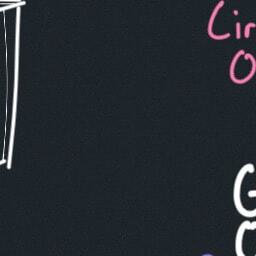 Cir
O
G